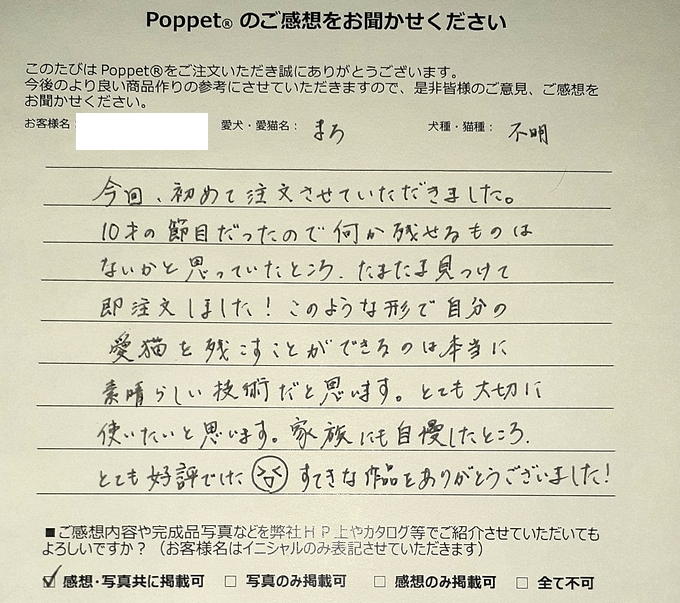 Poppet® のご感想をお聞かせください
このたびは Poppet®をご注文いただき誠にありがとうございます。
今後のより良い商品作りの参考にさせていただきますので、是非皆様のご意見、ご感想を
お聞かせください。
お客様名： 愛犬・愛猫名： まろ 犬種・猫種： 不明
今回、初めて注文させていただきました。
10才の節目だったので何か残せるものは
ないかと思っていたところ、たまたま見つけて
即注文しました！このような形で自分の
愛猫を残こすことができるのは本当に
素晴らしい技術だと思います。とても大切に
使いたいと思います。家族にも自慢したところ、
とても好評でした すてきな作品をありがとうございました！
■ご感想内容や完成品写真などを弊社ＨＰ上やカタログ等でご紹介させていただいても
よろしいですか？（お客様名はイニシャルのみ表記させていただきます）
☑ 感想・写真共に掲載可 □ 写真のみ掲載可 □ 感想のみ掲載可 □ 全て不可